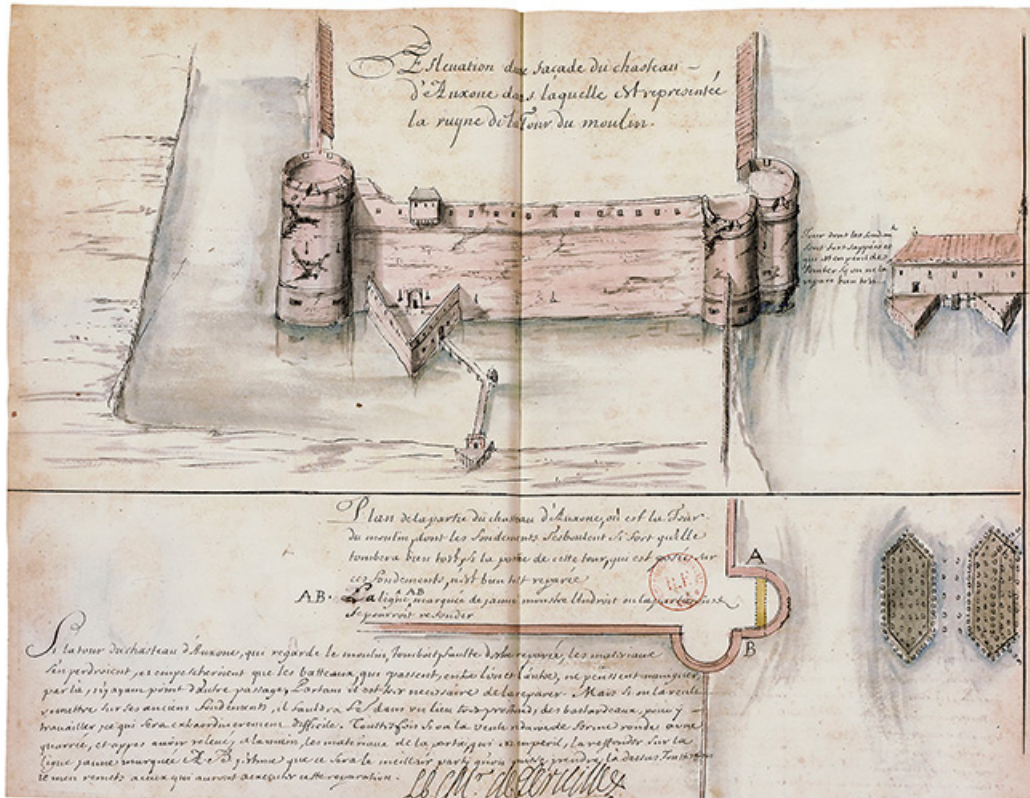 Esleuation dune façade du chasteau
d'Auxone dans laquelle est representée
la ruyne de la Tour du moulin.
Tour dont les fondem
sont fort sappéz et
qui est en peril de
tomber sy on ne la
repare bien tost
Plan de la partie du chasteau d'Auxone, où est la Tour
du moulin, dont les fondements s'esboulent si fort qu'elle
tombera bien tost, si la partie de cette tour, qui est portée sur
ces fondements, n'est bien tost reparée
AB. La ligne AB marquée de jaune monstre l'endroit ou la partie
se pourroit refonder
A
B
Si la tour du chasteau d'Auxone, qui regarde le moulin, tomboit faulte d'estre reparée, les materiaux
s'en perdroient, et empescheroient que les batteaux, qui passent, entre l'un et l'autre, ne peussent nauiguer
par là, n'y ayant point d'autre passage, Partant il est tres necessaire de la reparer. Mais si on la veult
remettre sur ses anciens fondements, il fauldra fe dans vn lieu tres profond, des bastardeaux, pour y
trauailler, ce qui sera extraordinerement difficile. Touttesfois si on la veult reduire de forme ronde a vne
quarrée, et apres auoir releué, a la main, les materiaux de la partie, qui est en peril, la reffonder sur la
ligne jaune marquée A et B, j'estime que ce sera le meilleur party qu'on puisse prendre la dessus Touttesfois
je men remets a ceux qui auront a executer cette reparation.